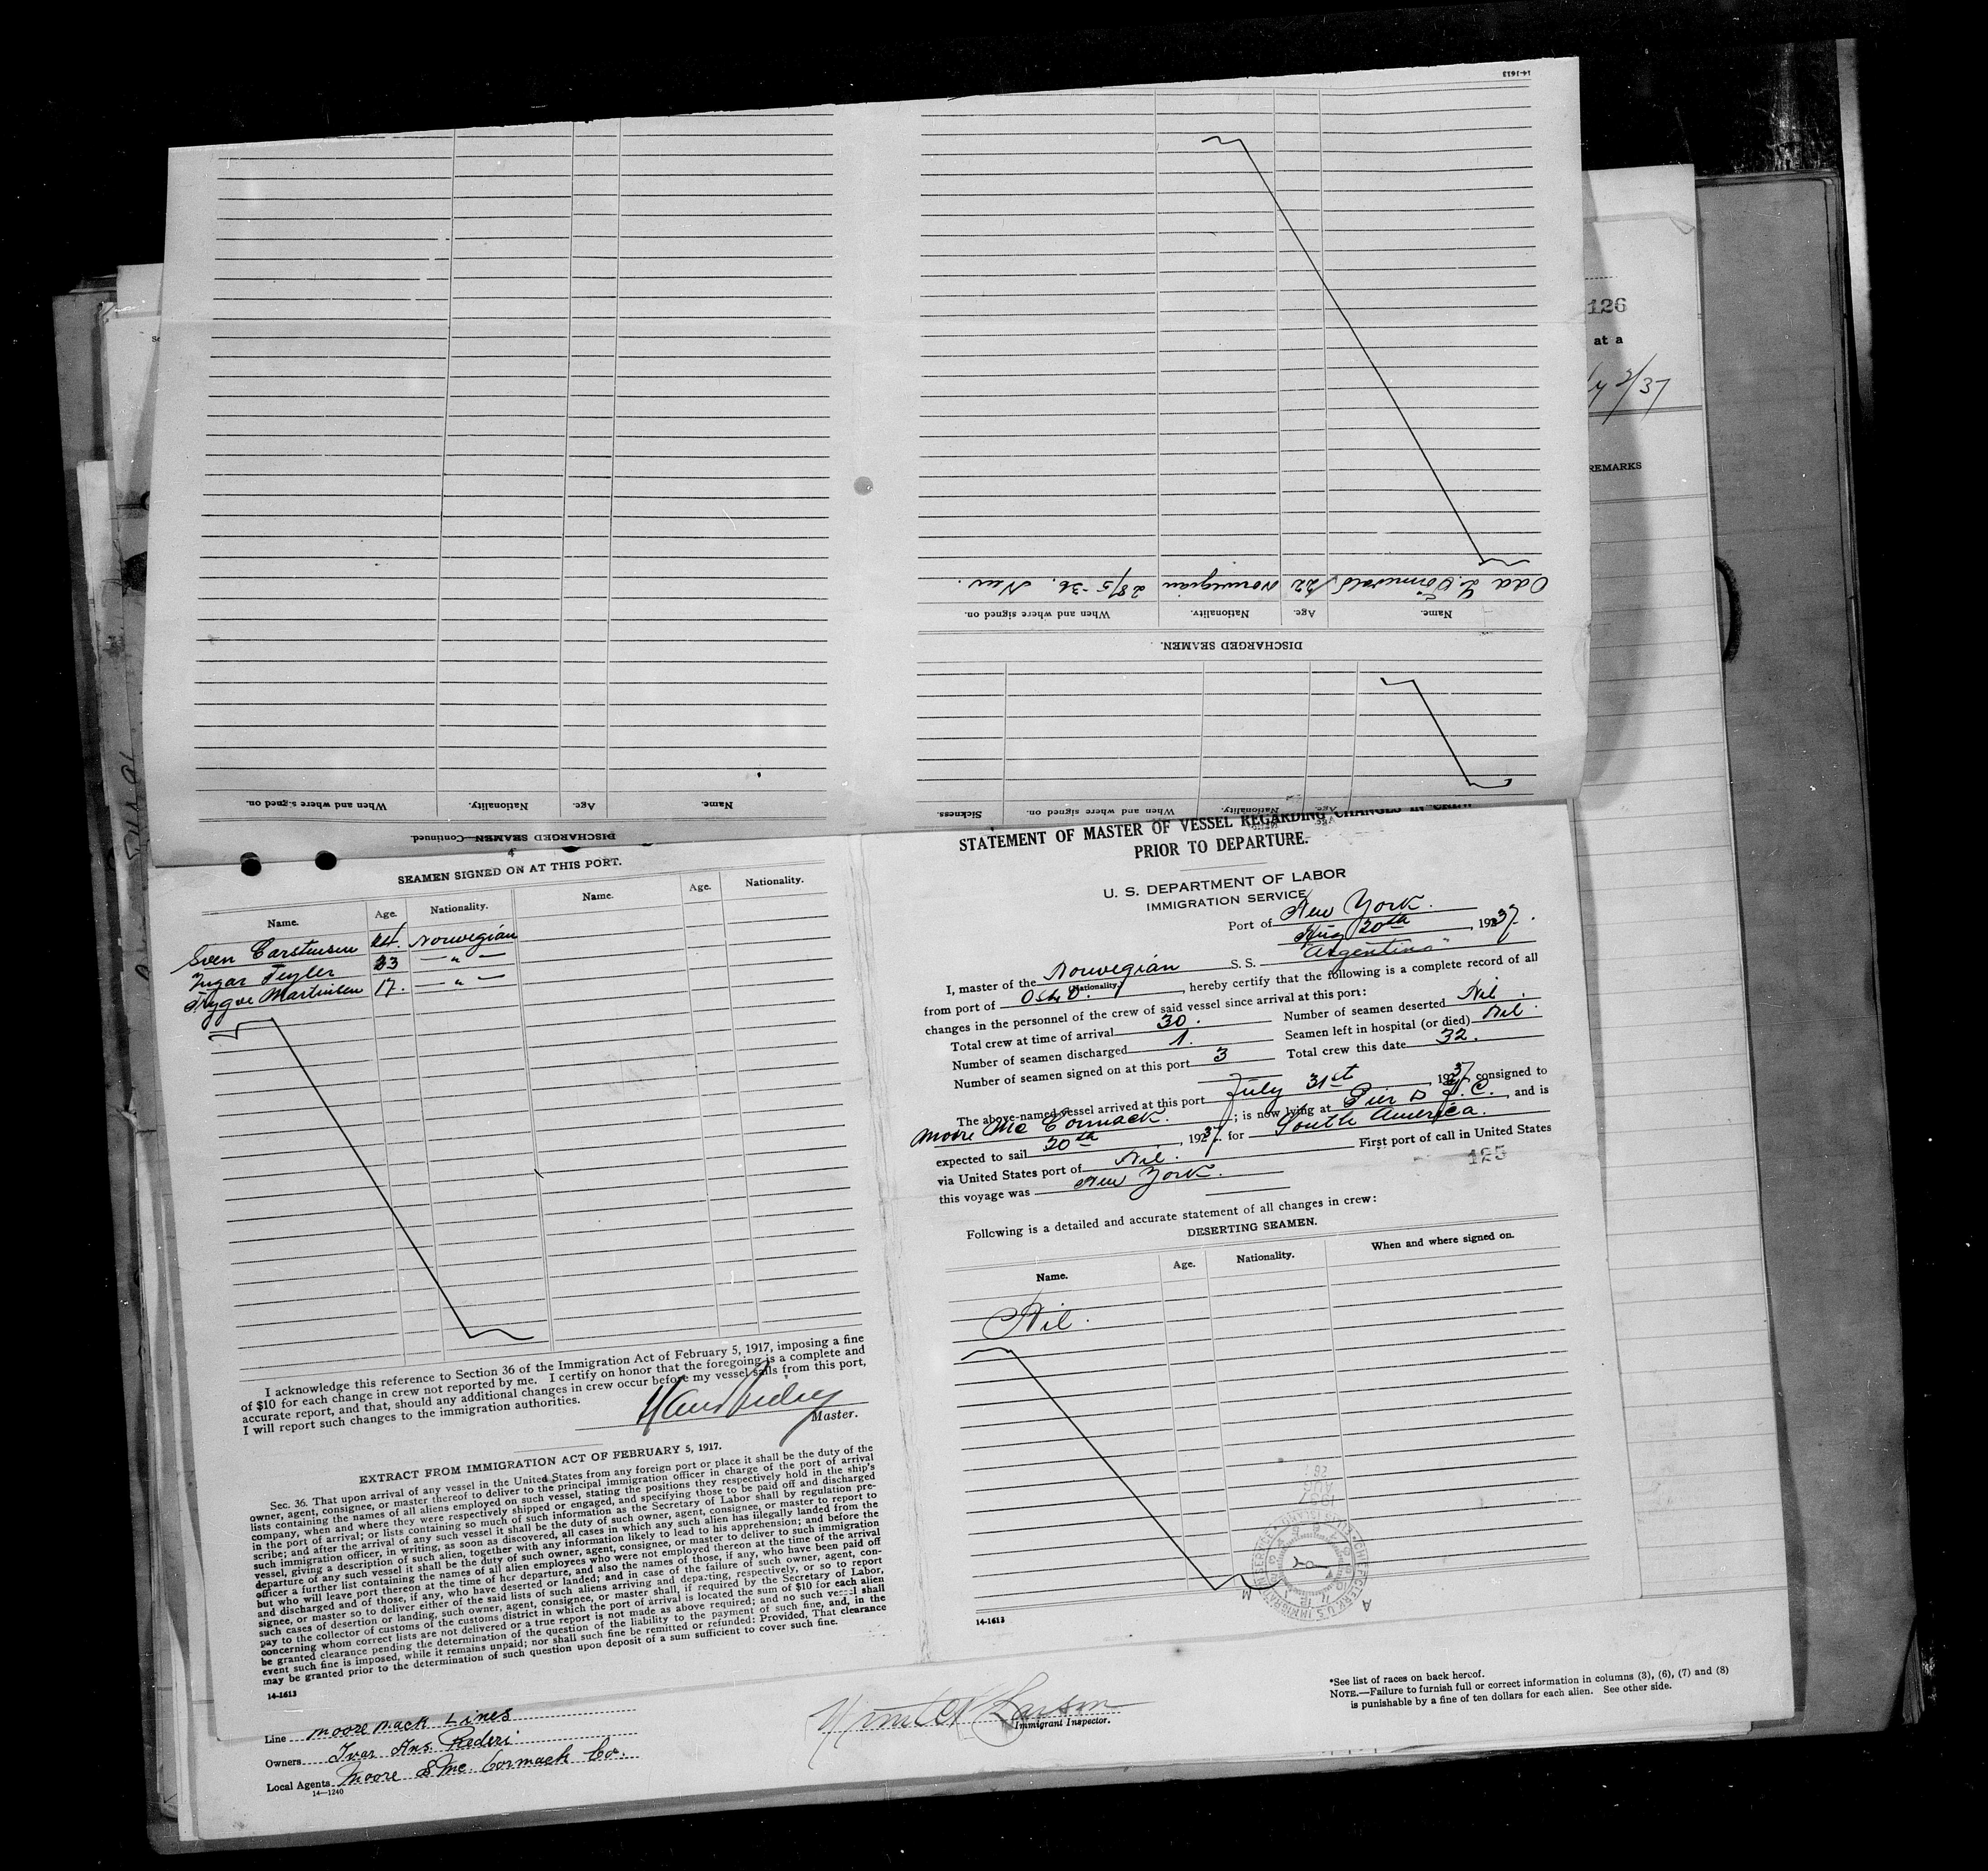 14-1613
Odd L. 22 Norwegian 28/5-36. New
Name. Age. Nationality. When and where signed on.
DISCHARGED SEAMEN.
Name. Age. Nationality. When and where signed on.
Age. Nationality. When and where signed on. Sickness.
DISCHARGED SEAMEN—Continued.
126
at a
2/37
REMARKS
4
SEAMEN SIGNED ON AT THIS PORT.
Name. Age. Nationality. Name. Age. Nationality.
Sven Carstensen 24. Norwegian
Ingar Teyler 23 — " —
Trygve Martinsen 17. — " —
I acknowledge this reference to Section 36 of the Immigration Act of February 5, 1917, imposing a fine
of $10 for each change in crew not reported by me. I certify on honor that the foregoing is a complete and
accurate report, and that, should any additional changes in crew occur before my vessel sails from this port,
I will report such changes to the immigration authorities.
Master.
EXTRACT FROM IMMIGRATION ACT OF FEBRUARY 5, 1917.
Sec. 36. That upon arrival of any vessel in the United States from any foreign port or place it shall be the duty of the
owner, agent, consignee, or master thereof to deliver to the principal immigration officer in charge of the port of arrival
lists containing the names of all aliens employed on such vessel, stating the positions they respectively hold in the ship's
company, when and where they were respectively shipped or engaged, and specifying those to be paid off and discharged
in the port of arrival; or lists containing so much of such information as the Secretary of Labor shall by regulation pre-
scribe; and after the arrival of any such vessel it shall be the duty of such owner, agent, consignee, or master to report to
such immigration officer, in writing, as soon as discovered, all cases in which any such alien has illegally landed from the
vessel, giving a description of such alien, together with any information likely to lead to his apprehension; and before the
departure of any such vessel it shall be the duty of such owner, agent, consignee, or master to deliver to such immigration
officer a further list containing the names of all alien employees who were not employed thereon at the time of the arrival
but who will leave port thereon at the time of her departure, and also the names of those, if any, who have been paid off
and discharged and of those, if any, who have deserted or landed; and in case of the failure of such owner, agent, con-
signee, or master so to deliver either of the said lists of such aliens arriving and departing, respectively, or so to report
such cases of desertion or landing, such owner, agent, consignee, or master shall, if required by the Secretary of Labor,
pay to the collector of customs of the customs district in which the port of arrival is located the sum of $10 for each alien
concerning whom correct lists are not delivered or a true report is not made as above required; and no such vessel shall
be granted clearance pending the determination of the question of the liability to the payment of such fine, and, in the
event such fine is imposed, while it remains unpaid; nor shall such fine be remitted or refunded: Provided, That clearance
may be granted prior to the determination of such question upon deposit of a sum sufficient to cover such fine.
14-1613
STATEMENT OF MASTER OF VESSEL REGARDING CHANGES IN CREW
PRIOR TO DEPARTURE.
U. S. DEPARTMENT OF LABOR
IMMIGRATION SERVICE
Port of New York.
Aug 20th, 1937.
I, master of the Norwegian S. S. "Argentino"
(Nationality.)
from port of Oslo., hereby certify that the following is a complete record of all
changes in the personnel of the crew of said vessel since arrival at this port:
Total crew at time of arrival 30. Number of seamen deserted Nil.
Number of seamen discharged 1. Seamen left in hospital (or died) Nil.
Number of seamen signed on at this port 3 Total crew this date 32.
The above-named vessel arrived at this port July 31st, 1937 consigned to
Moore Mc Cormack.; is now lying at Pier D J.C., and is
expected to sail 20th, 1937. for South America.
via United States port of Nil. First port of call in United States
this voyage was New York.
125
Following is a detailed and accurate statement of all changes in crew:
DESERTING SEAMEN.
Name. Age. Nationality. When and where signed on.
Nil.
1937
AUG
14-1613
Line Moore Mack Lines
Owners Ivar Ans. Rederi
Local Agents Moore & Mc. Cormack Co.
14—1240
Larson
Immigrant Inspector.
*See list of races on back hereof.
NOTE.—Failure to furnish full or correct information in columns (3), (6), (7) and (8)
is punishable by a fine of ten dollars for each alien. See other side.